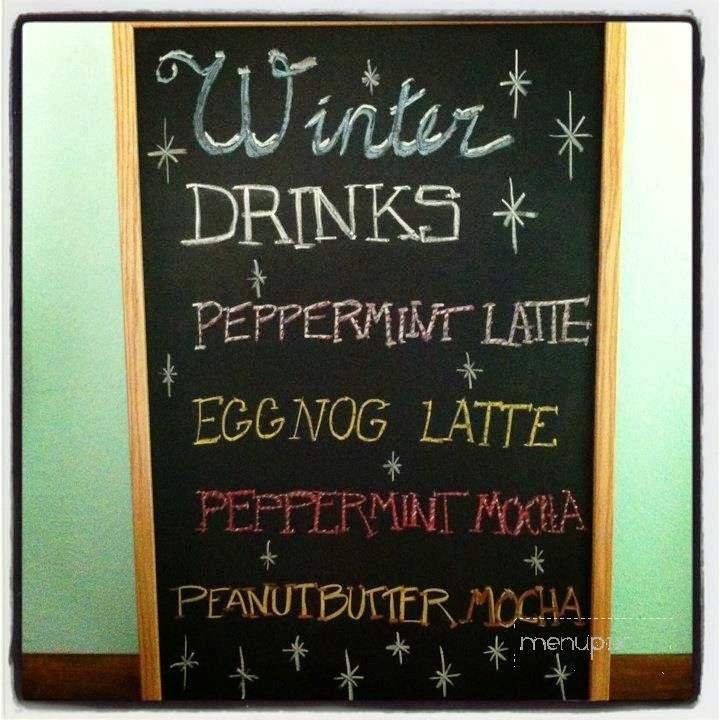 Winter
DRINKS
PEPPERMINT LATTE
EGGNOG LATTE
PEPPERMINT MOCHA
PEANUTBUTTER MOCHA